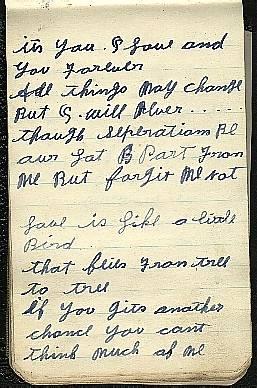 its you. I love and
You Forever
All things May change
But I. will Never.....
though Seperation Be
our Lot & Part From
Me But forgit Me not
Love is Like a little
Bird
that flies From tree
to tree
if You gits another
chanc You cant
think Much of Me